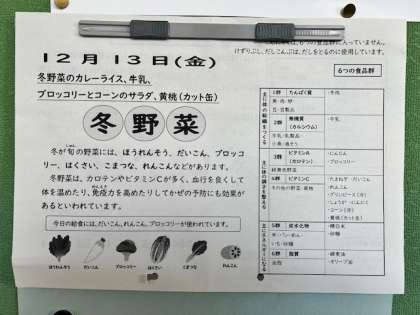 12月13日(金)
冬野菜のカレーライス、牛乳、
ブロッコリーとコーンのサラダ、黄桃(カット缶)
冬野菜
冬が旬の野菜には、ほうれんそう、だいこん、ブロッコ
リー、はくさい、こまつな、れんこんなどがあります。
冬野菜は、カロテンやビタミンCが多く、血行を良くして
体を温めたり、免疫力を高めたりしてかぜの予防にも効果が
あるといわれています。
今日の給食には、だいこん、れんこん、ブロッコリーが使われています。
ほうれんそう だいこん ブロッコリー はくさい こまつな れんこん
けずりぶし、だしこんぶは、だしをとるのに使用しています。
6つの食品群
1群 たんぱく質
・牛肉
魚・肉・卵・
豆・豆製品
2群 無機質
(カルシウム)
・牛乳
牛乳・乳製品・
小魚・海そう
3群 ビタミンA
(カロテン)
・にんじん
・ブロッコリー
緑黄色野菜
4群 ビタミンC
その他の野菜・果物
・たまねぎ ・だいこん
・れんこん
・グリンピース(冷)
・しょうが ・にんにく
・コーン(冷)
・黄桃(カット缶)
5群 炭水化物
・精白米
・砂糖
6群 脂質
油脂
・オリーブ油